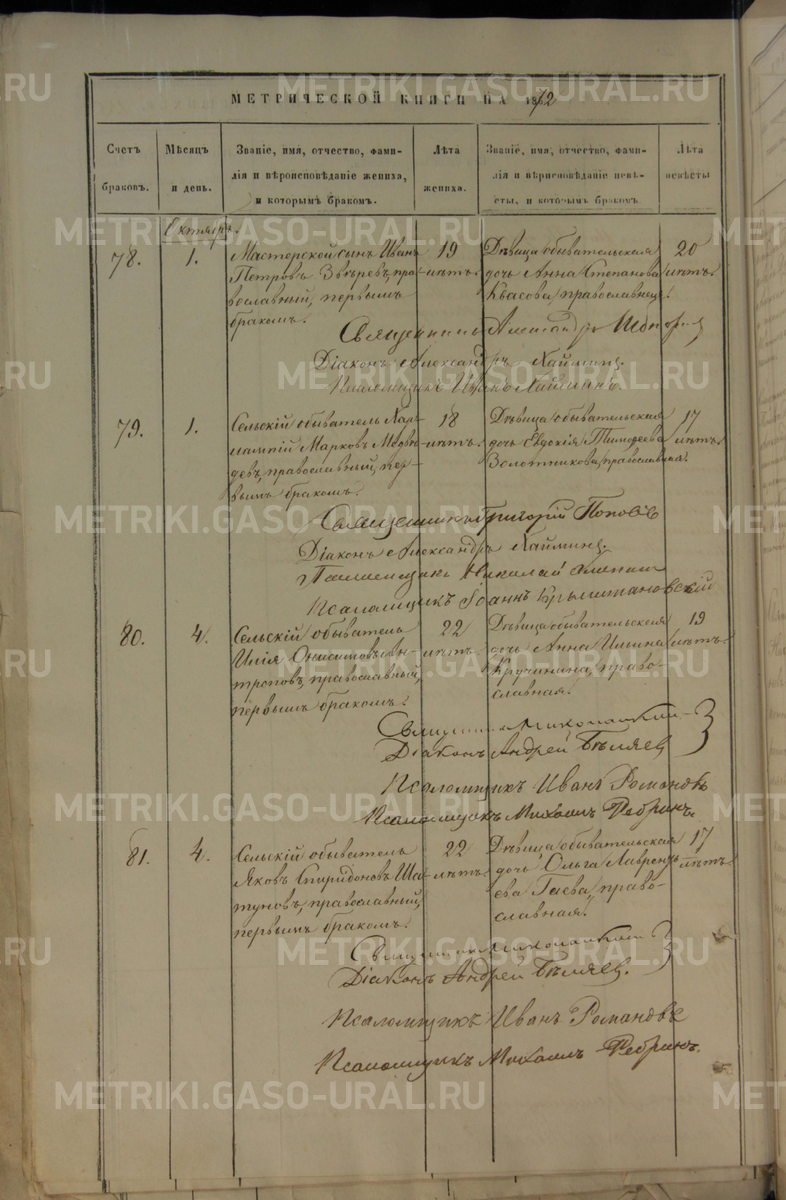 МЕТРИЧЕСКОЙ КНИГИ НА 1872
Счетъ браковъ.
Мѣсяцъ и день.
Званіе, имя, отчество, фами-
лія и вѣроисповѣданіе жениха,
и которымъ бракомъ.
Лѣта жениха.
Званіе, имя, отчество, фами-
лія и вѣроисповѣданіе невѣ-
сты, и которымъ бракомъ.
Лѣта невѣсты
Октябрь.
78.
1.
Мастерской сынъ Иванъ
Петровъ Звѣревъ, пра-
вославный, первымъ
бракомъ.
19
лѣтъ.
Дѣвица обывательская
дочь Анна Степанова
Квасова, православная.
20
лѣтъ.
Священникъ Александръ
Діаконъ Александръ Хайминъ.
Псаломщикъ
79.
1.
Сельскій обыватель Хар-
лампій Марковъ Медвѣ-
девъ, православный, пер-
вымъ бракомъ.
18
лѣтъ.
Дѣвица обывательская
дочь Евдокія Тимофеева
Золотникова, православная.
17
лѣтъ.
Священникъ Григорій Поповъ
Діаконъ Александръ Хайминъ.
Николай
Псаломщикъ Іоаннъ
80.
4.
Сельскій обыватель
Илія Онисимовъ Ан-
троповъ, православный,
первымъ бракомъ.
22
лѣтъ.
Дѣвица обывательская
дочь Анна Ильина
Кручинина, право-
славная.
19
лѣтъ.
Священникъ
Діаконъ Андрей Бѣляевъ
Псаломщикъ Иванъ Романовъ
Псаломщикъ Михаилъ Ребринъ.
81.
4.
Сельскій обыватель
Яковъ Спиридоновъ Ша-
туновъ, православный,
первымъ бракомъ.
22
лѣтъ.
Дѣвица обывательская
дочь Ольга Лаврентьева
Гаева, право-
славная.
17
лѣтъ.
Священникъ
Діаконъ Андрей Бѣляевъ.
Псаломщикъ Иванъ Романовъ
Псаломщикъ Михаилъ Ребринъ.
METRIKI.GASO-URAL.RU